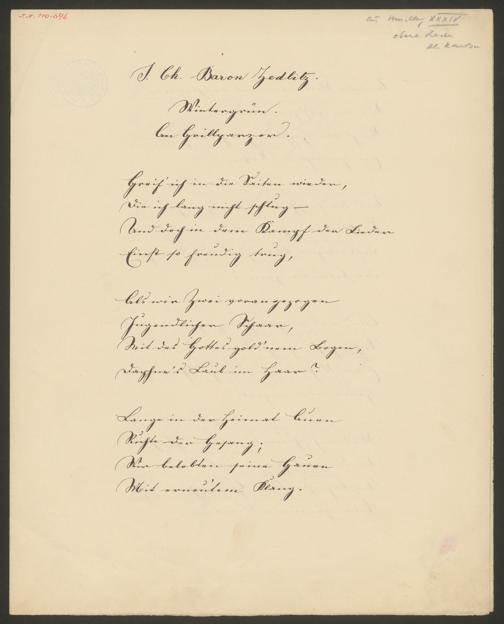 I.N. 110.696
XXXIV
J. Ch. Baron Zedlitz.
Wintergrün.
An Grillparzer.
Greif' ich in die Saiten wieder,
Die ich lang nicht schlug —
Und doch in dem Kampf der Lieder
Einst so freudig trug,
Als wir Zwei vorangezogen
Jugendlicher Schaar,
Mit des Gottes gold'nem Bogen,
Daphne's Laub im Haar?
Lange in der Heimat Auen
Ruhte der Gesang;
Wir belebten seine Gauen
Mit erneutem Klang.